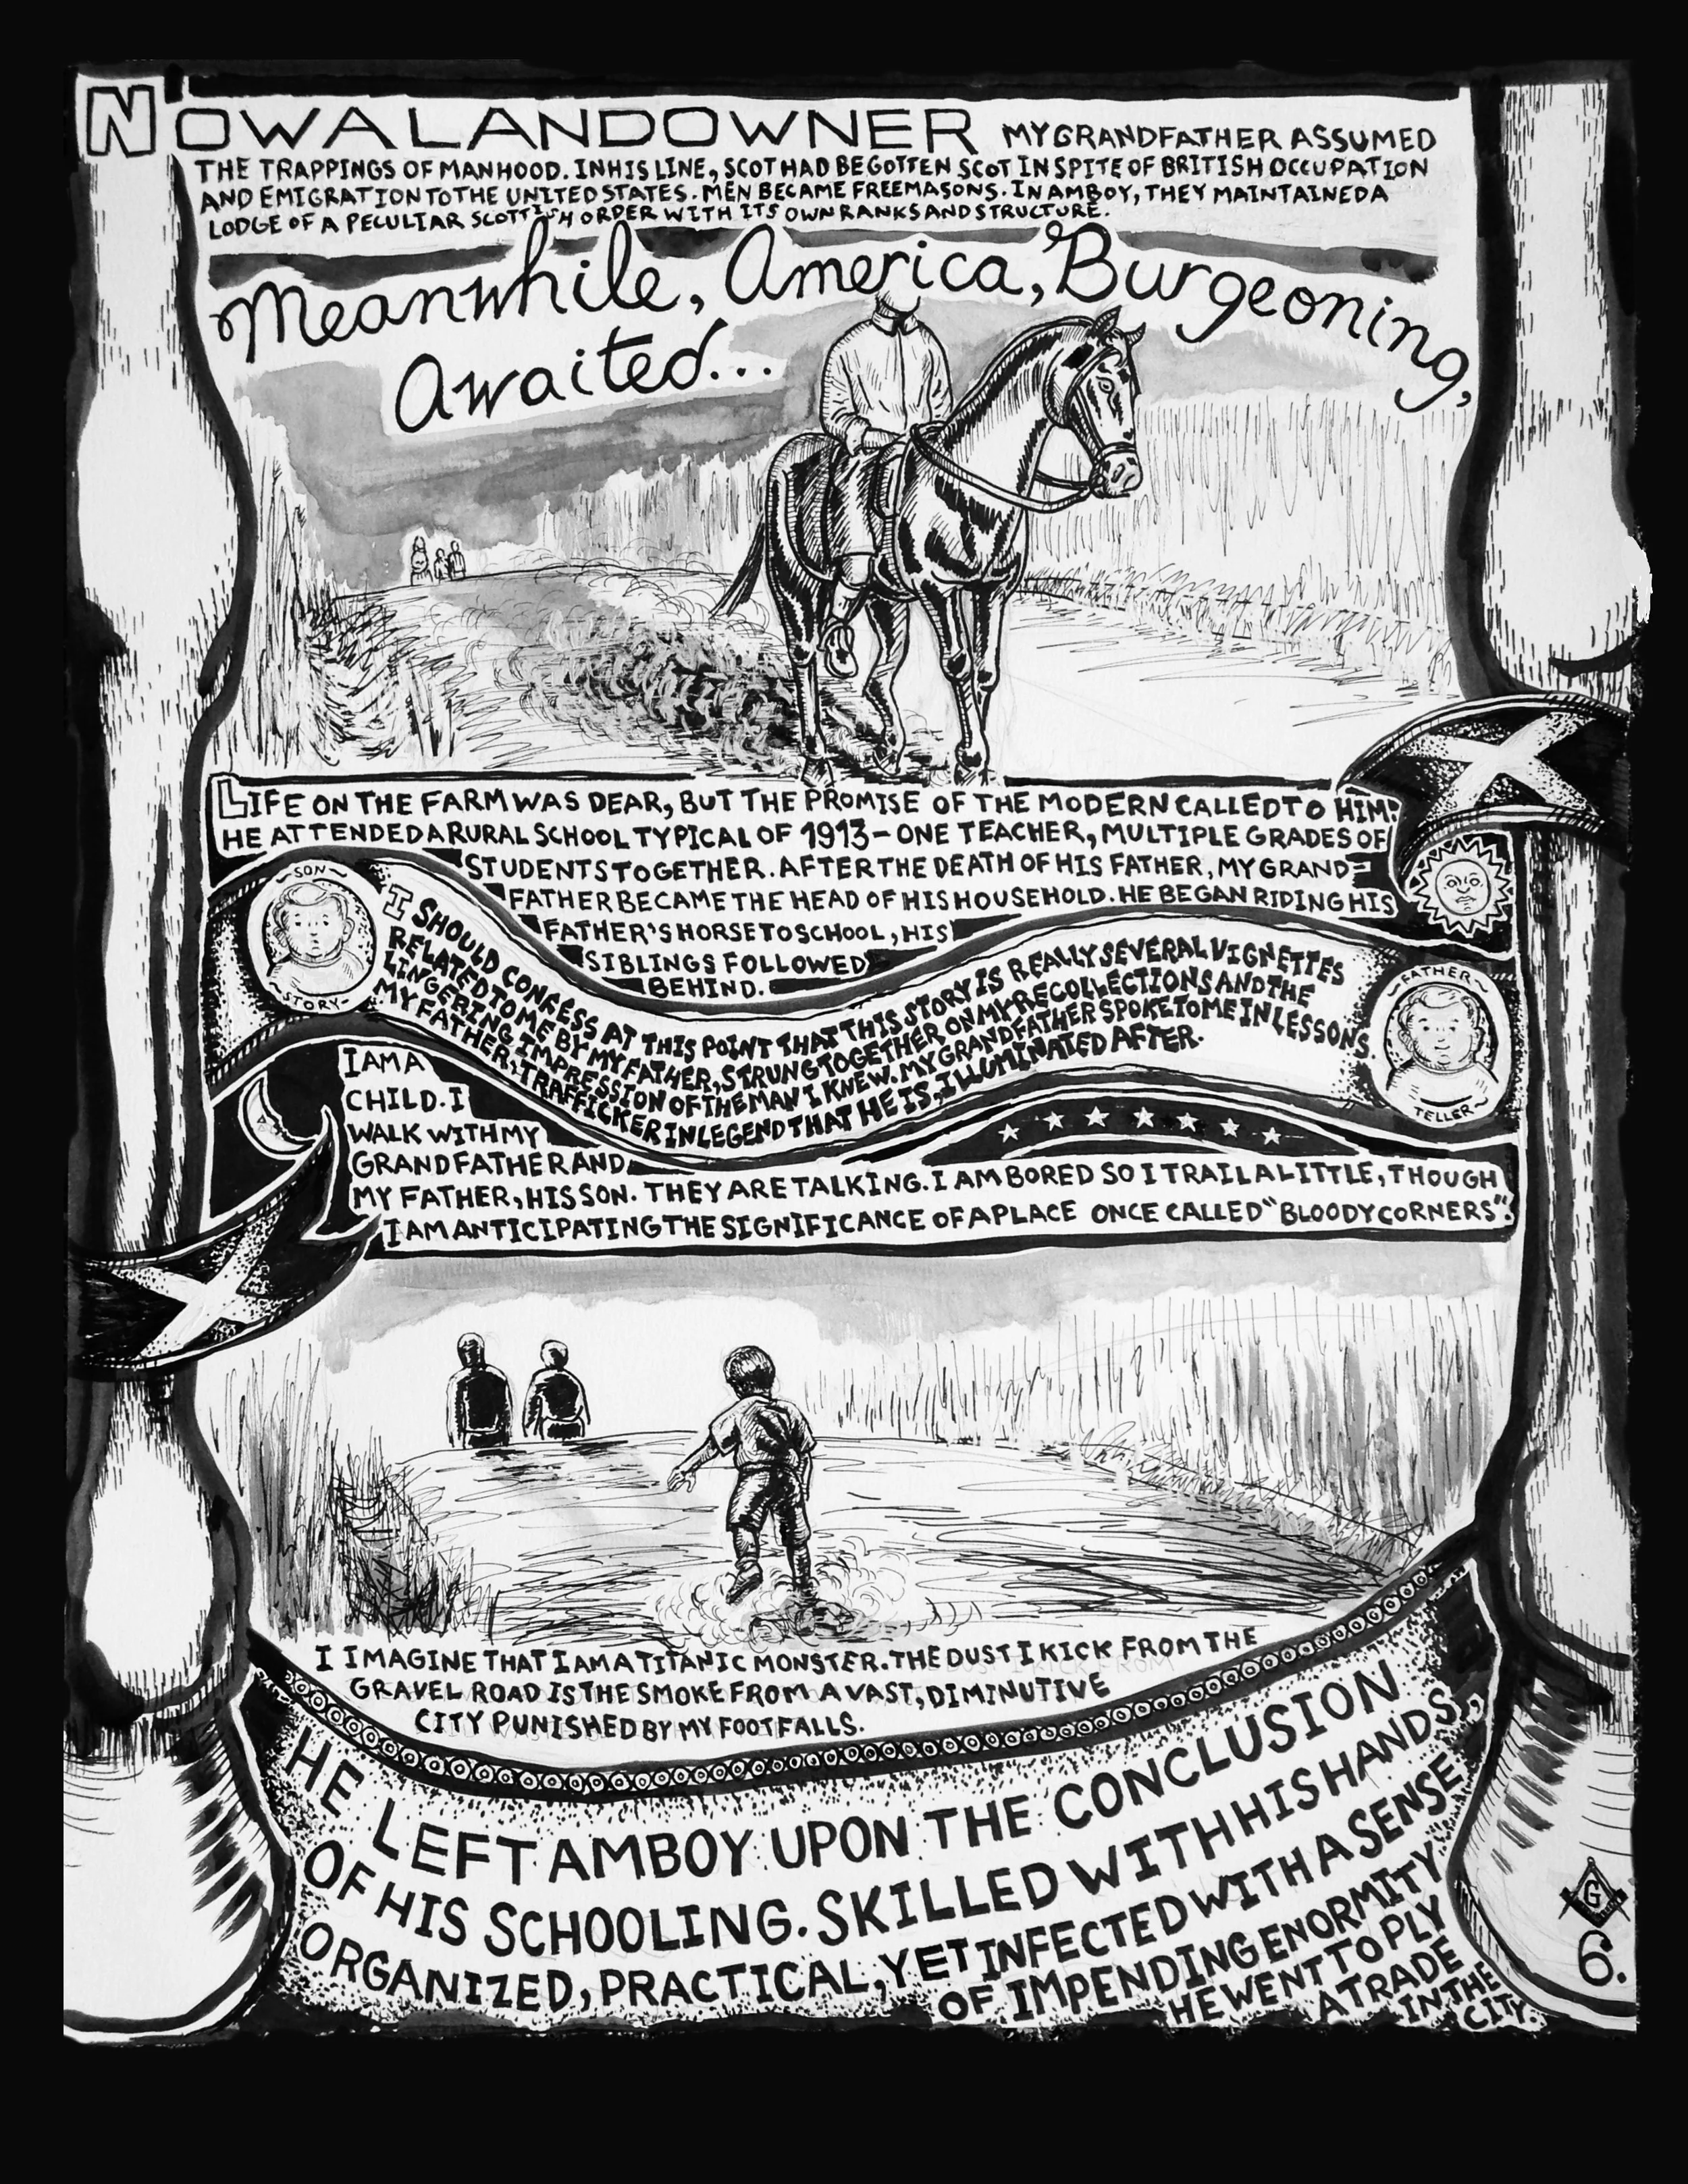 NOW A LANDOWNER MY GRANDFATHER ASSUMED
THE TRAPPINGS OF MANHOOD. IN HIS LINE, SCOT HAD BEGOTTEN SCOT IN SPITE OF BRITISH OCCUPATION
AND EMIGRATION TO THE UNITED STATES. MEN BECAME FREEMASONS. IN AMBOY, THEY MAINTAINED A
LODGE OF A PECULIAR SCOTTISH ORDER WITH ITS OWN RANKS AND STRUCTURE.
Meanwhile, America, Burgeoning,
Awaited...
LIFE ON THE FARM WAS DEAR, BUT THE PROMISE OF THE MODERN CALLED TO HIM.
HE ATTENDED A RURAL SCHOOL TYPICAL OF 1913- ONE TEACHER, MULTIPLE GRADES OF
STUDENTS TOGETHER. AFTER THE DEATH OF HIS FATHER, MY GRAND-
FATHER BECAME THE HEAD OF HIS HOUSEHOLD. HE BEGAN RIDING HIS
FATHER'S HORSE TO SCHOOL, HIS
SIBLINGS FOLLOWED
BEHIND.
SON
STORY
I SHOULD CONFESS AT THIS POINT THAT THIS STORY IS REALLY SEVERAL VIGNETTES
RELATED TO ME BY MY FATHER, STRUNG TOGETHER ON MY RECOLLECTIONS AND THE
LINGERING IMPRESSION OF THE MAN I KNEW. MY GRANDFATHER SPOKE TO ME IN LESSONS.
MY FATHER, TRAFFICKER IN LEGEND THAT HE IS, ILLUMINATED AFTER.
FATHER
TELLER
I AM A
CHILD. I
WALK WITH MY
GRANDFATHER AND
MY FATHER, HIS SON. THEY ARE TALKING. I AM BORED SO I TRAIL A LITTLE, THOUGH
I AM ANTICIPATING THE SIGNIFICANCE OF A PLACE ONCE CALLED "BLOODY CORNERS".
I IMAGINE THAT I AM A TITANIC MONSTER. THE DUST I KICK FROM THE
GRAVEL ROAD IS THE SMOKE FROM A VAST, DIMINUTIVE
CITY PUNISHED BY MY FOOTFALLS.
HE LEFT AMBOY UPON THE CONCLUSION
OF HIS SCHOOLING. SKILLED WITH HIS HANDS,
ORGANIZED, PRACTICAL, YET INFECTED WITH A SENSE
OF IMPENDING ENORMITY
HE WENT TO PLY
A TRADE
IN THE
CITY.
G
6.